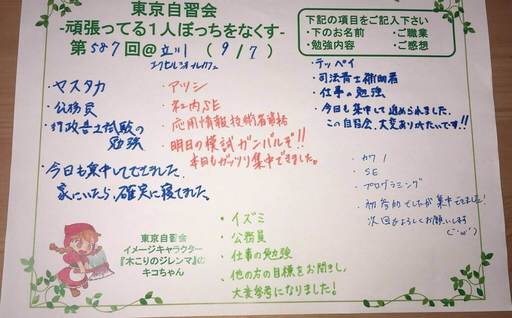 東京自習会
-頑張ってる1人ぼっちをなくす-
第587回@立川(9/7)
エクセルシオールカフェ
下記の項目をご記入下さい
・下のお名前 ・ご職業
・勉強内容 ・ご感想
・ヤスタカ
・公務員
・行政書士試験の
勉強
・今日も集中してできました。
家にいたら、確実に寝てました。
・アツシ
・社内SE
・応用情報技術者資格
・明日の模試ガンバルぞ!!
本日もガッツリ集中できました。
・テッペイ
・司法書士補助者
・仕事の勉強
・今日も集中して進められました。
この自習会、大変ありがたいです!!
・カワノ
・SE
・プログラミング
・初参加でしたが集中できました!
次回もよろしくお願いします
・イズミ
・公務員
・仕事の勉強
・他の方の目標をお聞きし、
大変参考になりました!
東京自習会
イメージキャラクター
『木こりのジレンマ』の
キコちゃん